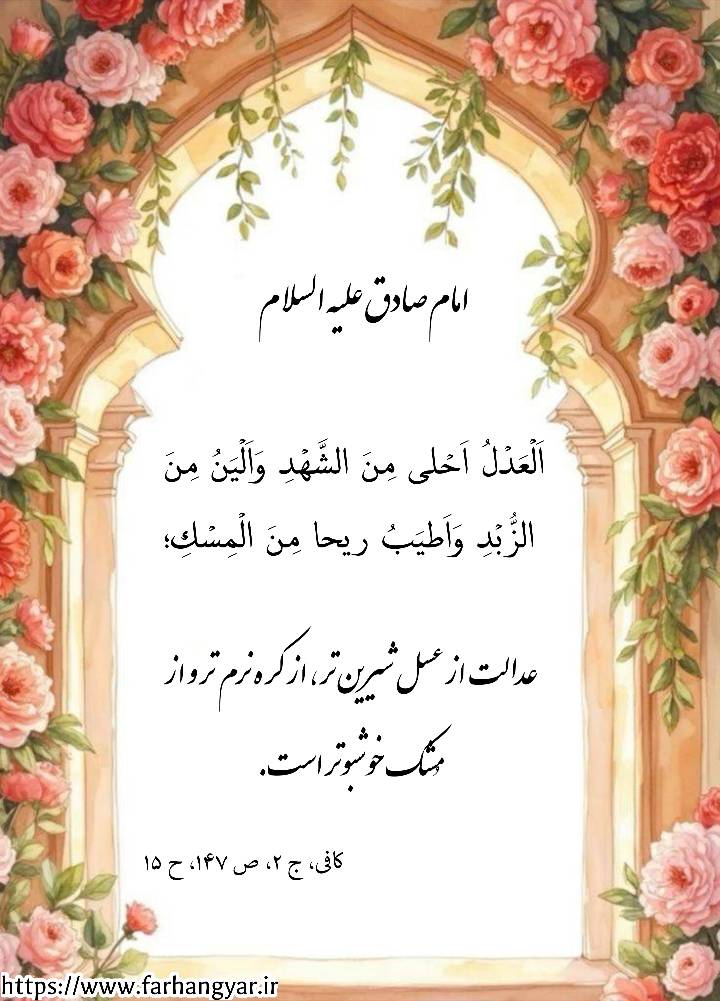 امام صادق علیه السلام
اَلْعَدْلُ اَحْلی مِنَ الشَّهْدِ وَاَلْيَنُ مِنَ
الزُّبْدِ وَاَطيَبُ ريحا مِنَ الْمِسْكِ؛
عدالت از عسل شیرین‌تر، از کره نرم تر و از
مُشک خوشبوتر است.
کافی، ج ۲، ص ۱۴۷، ح ۱۵
https://www.farhangyar.ir